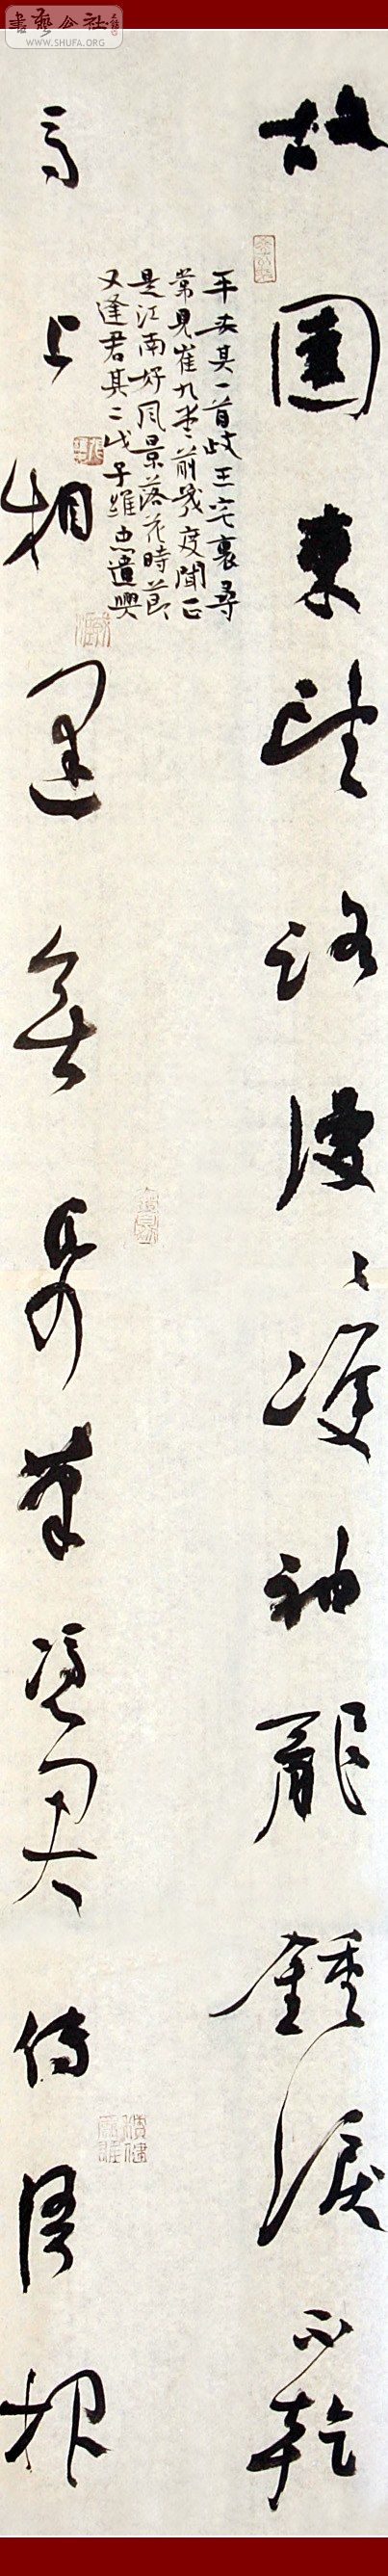 書藝公社
WWW.SHUFA.ORG
故園東望路漫〻雙袖龍鍾淚不乾
馬上相逢無紙筆憑君傳語報
平安其一首歧王宅裏尋
常見崔九堂前幾度聞正
是江南好風景落花時節
又逢君其二戊子維忠遣興